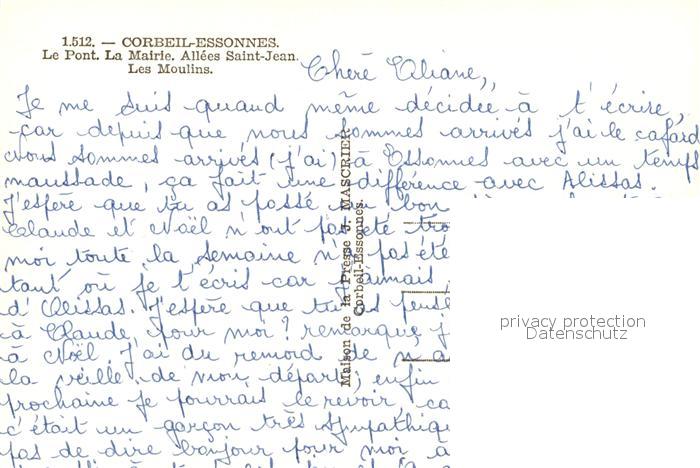 1.512. — CORBEIL-ESSONNES.
Le Pont. La Mairie. Allées Saint-Jean.
Les Moulins.
Chère Eliane,
Je me suis quand même décidée à t'écrire,
car depuis que nous sommes arrivés j'ai le cafard
nous sommes arrivés (j'ai) à Essonnes avec un temps
maussade, ça fait une différence avec Alissas.
J'espère que tu as passé un bon
Claude et Noël n'ont pas été
moi toute la semaine n'a pas été
tant où je t'écris car j'aimais
d'Alissas. J'espère que tu as
à Claude, pour moi? remarque, j
à Noël. J'ai du remord de n'a
la veille de mon départ, enfin
prochaine je pourrais le revoir, ca
c'était un garçon très sympathiq
pas de dire bonjour pour moi a
Maison de la Presse J. MASCRIER
Corbeil-Essonnes.
privacy protection
Datenschutz